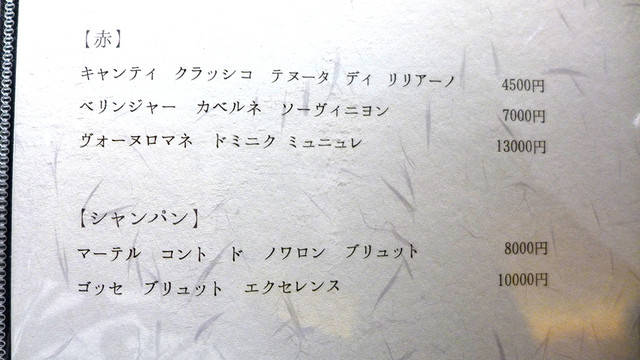 【赤】
キャンティ クラッシコ テヌータ ディ リリアーノ 4500円
ベリンジャー カベルネ ソーヴィニヨン 7000円
ヴォーヌロマネ ドミニク ミュニュレ 13000円
【シャンパン】
マーテル コント ド ノワロン ブリュット 8000円
ゴッセ ブリュット エクセレンス 10000円